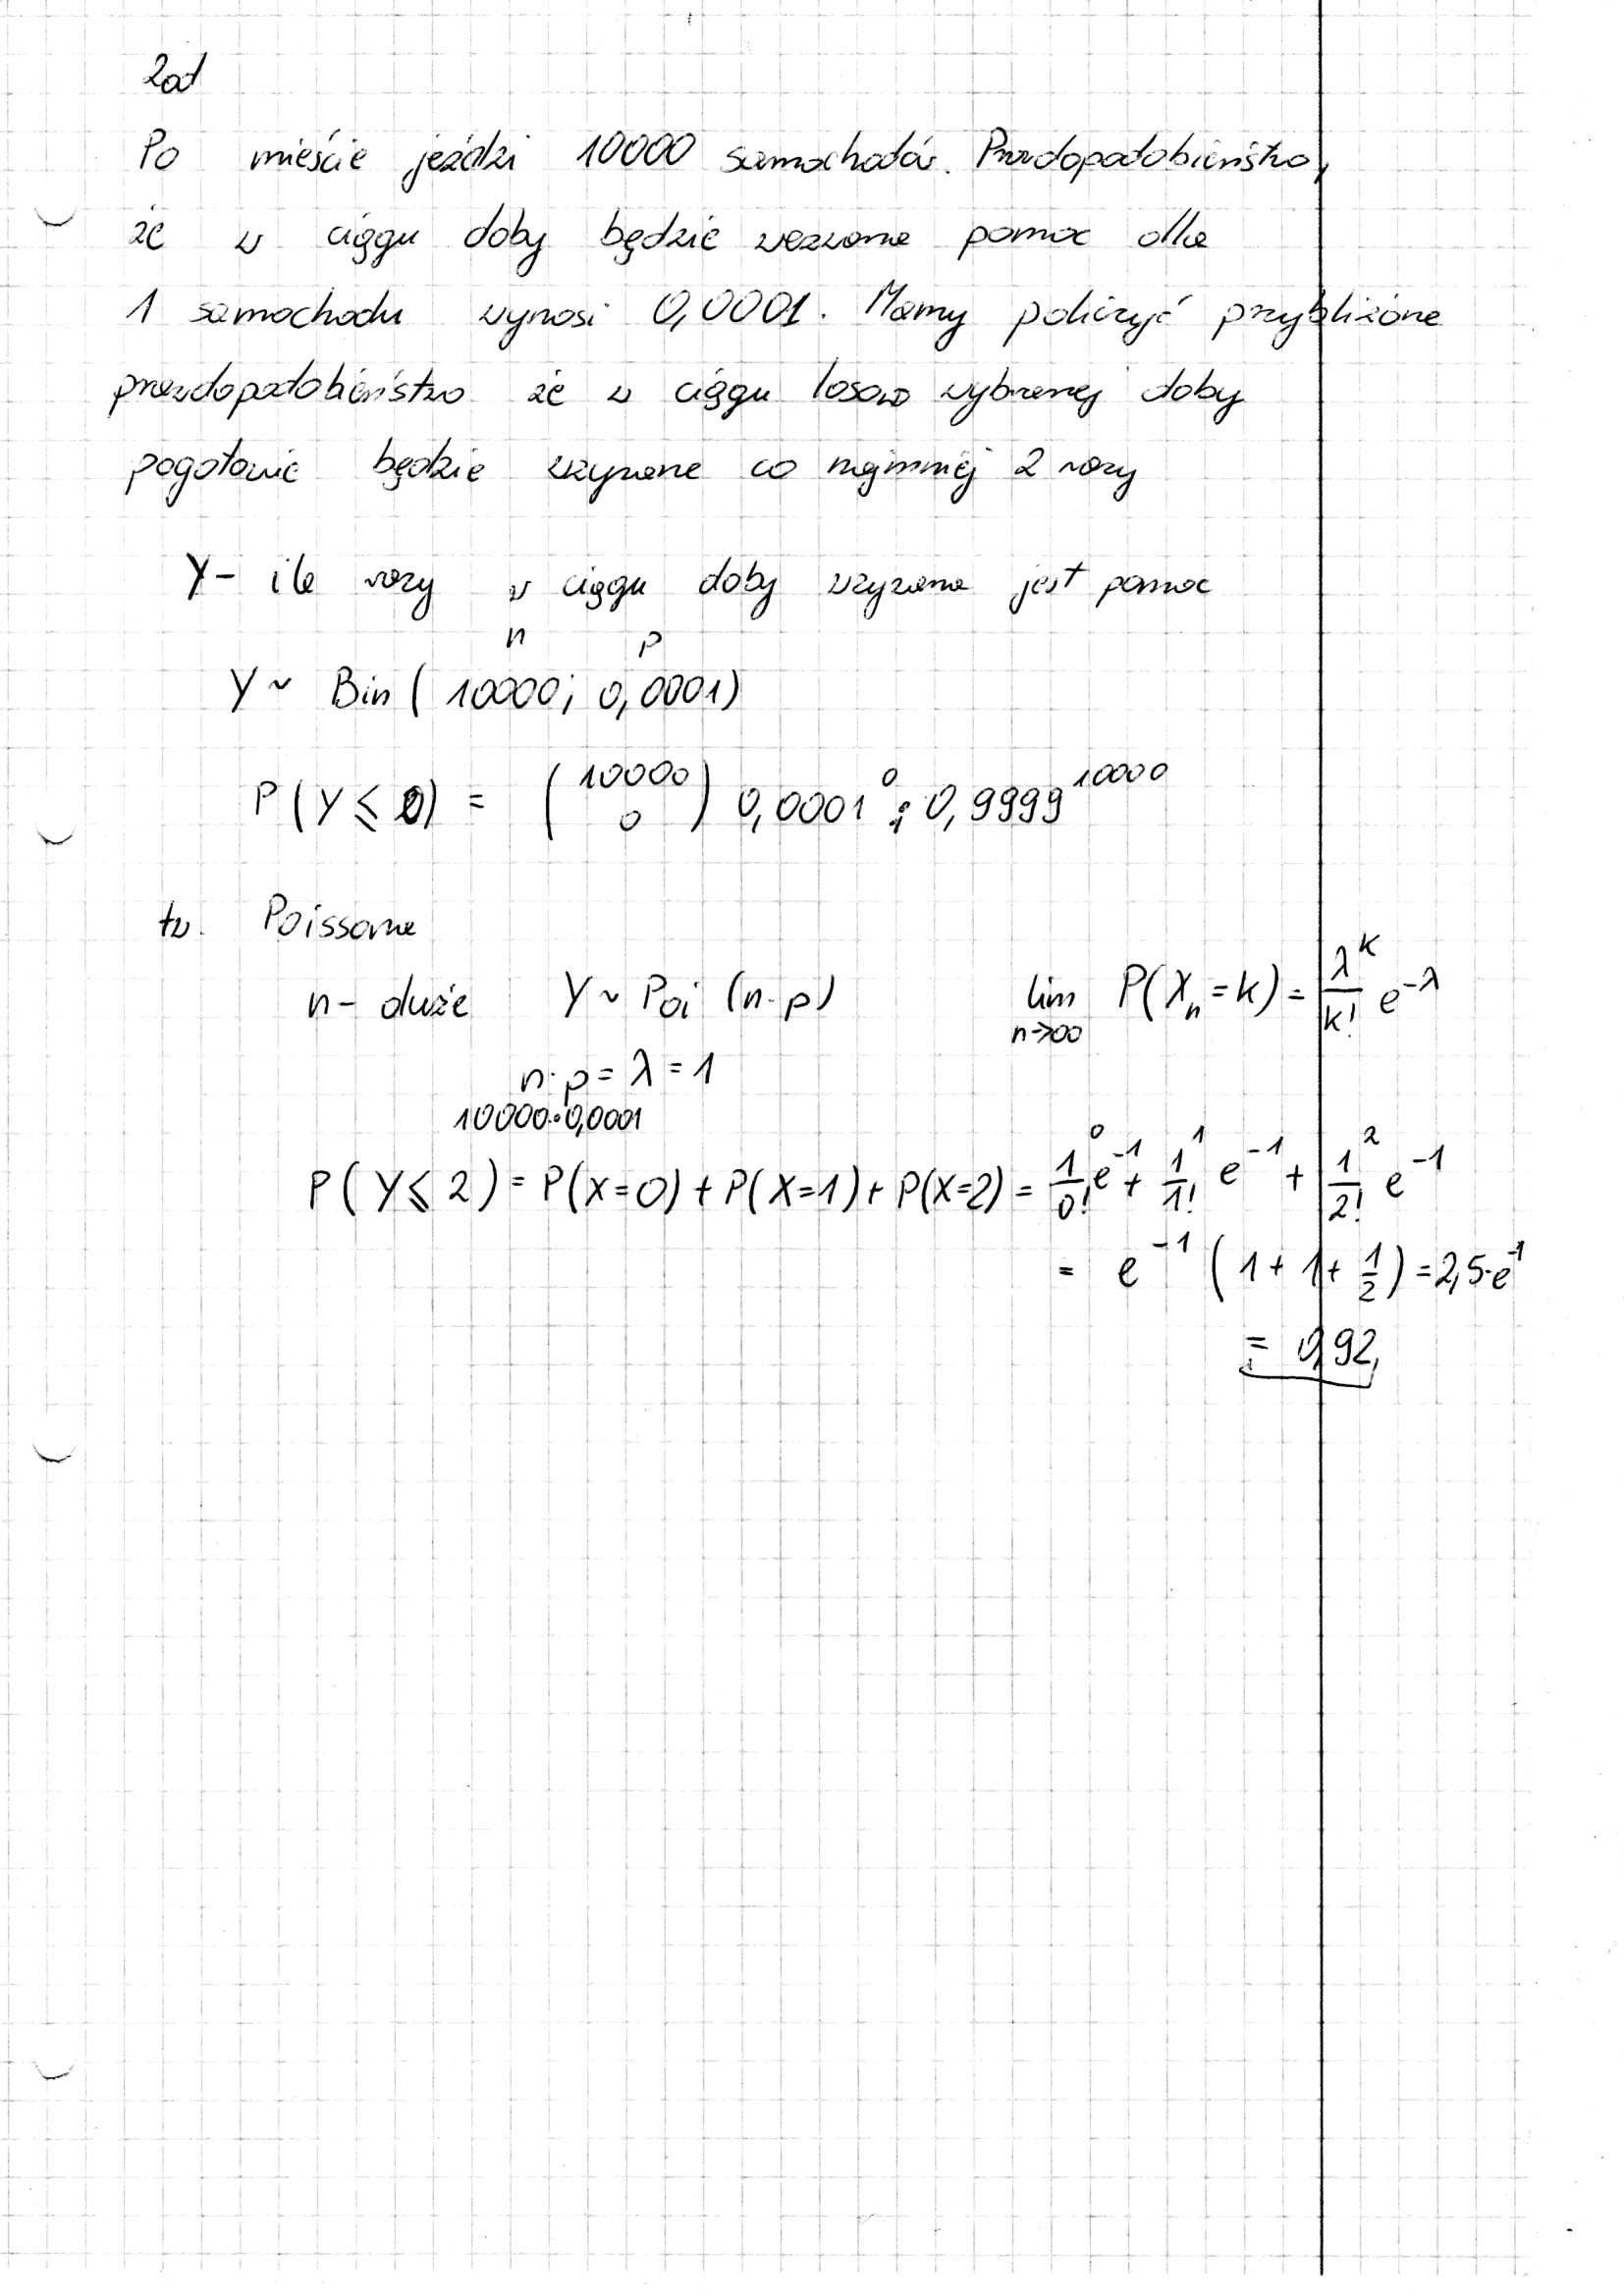 Zad
Po mieście jeździ 10000 samochodów. Prawdopodobieństwo,
że w ciągu doby będzie wezwana pomoc dla
1 samochodu wynosi 0,0001. Mamy policzyć przybliżone
prawdopodobieństwo że w ciągu losowo wybranej doby
pogotowie będzie wzywane co najmniej 2 razy
Y - ile razy w ciągu doby wzywana jest pomoc
n p
Y ~ Bin ( 10000; 0,0001)
P(Y ≤ 0) = (10000 0) 0,0001^0 · 0,9999^10000
tw. Poissona
n - duże Y ~ Poi (n·p) lim n→∞ P(X_n = k) = λ^k/k! e^-λ
n·p = λ = 1
10000·0,0001
P( Y ≤ 2) = P(X=0) + P(X=1) + P(X=2) = 1^0/0! e^-1 + 1^1/1! e^-1 + 1^2/2! e^-1
= e^-1 (1 + 1 + 1/2) = 2,5·e^-1
= 0,92